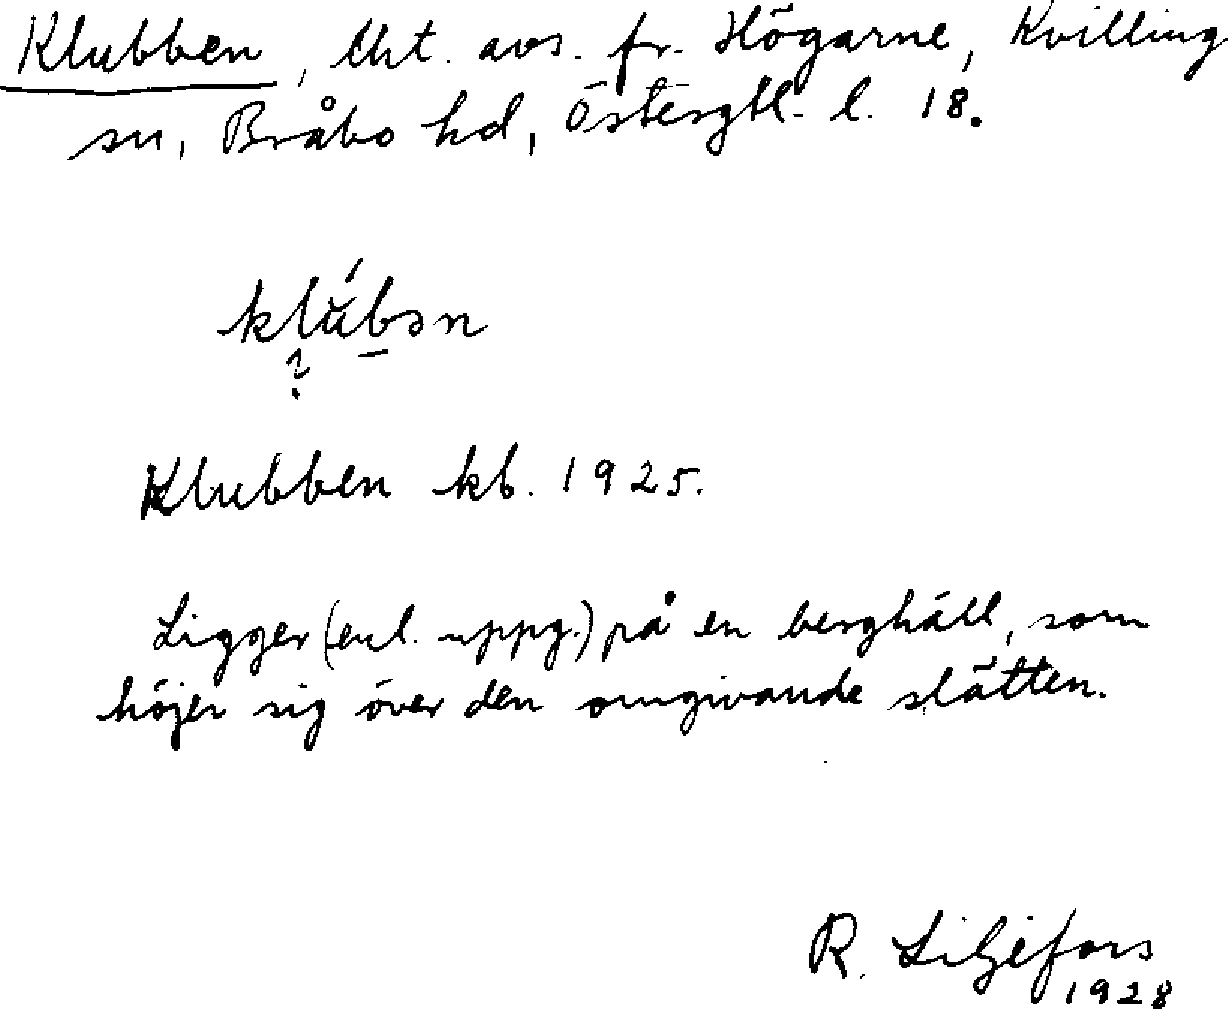 Klubben, lht. avs. fr. Högarne, Kvilling
sn, Bråbo hd, Östergtl. l. 18.
klŭ́bən
?
Klubben kb. 1925.
Ligger (enl. uppg.) på en berghäll, som
höjer sig över den omgivande slätten.
R. Liljefors
1928